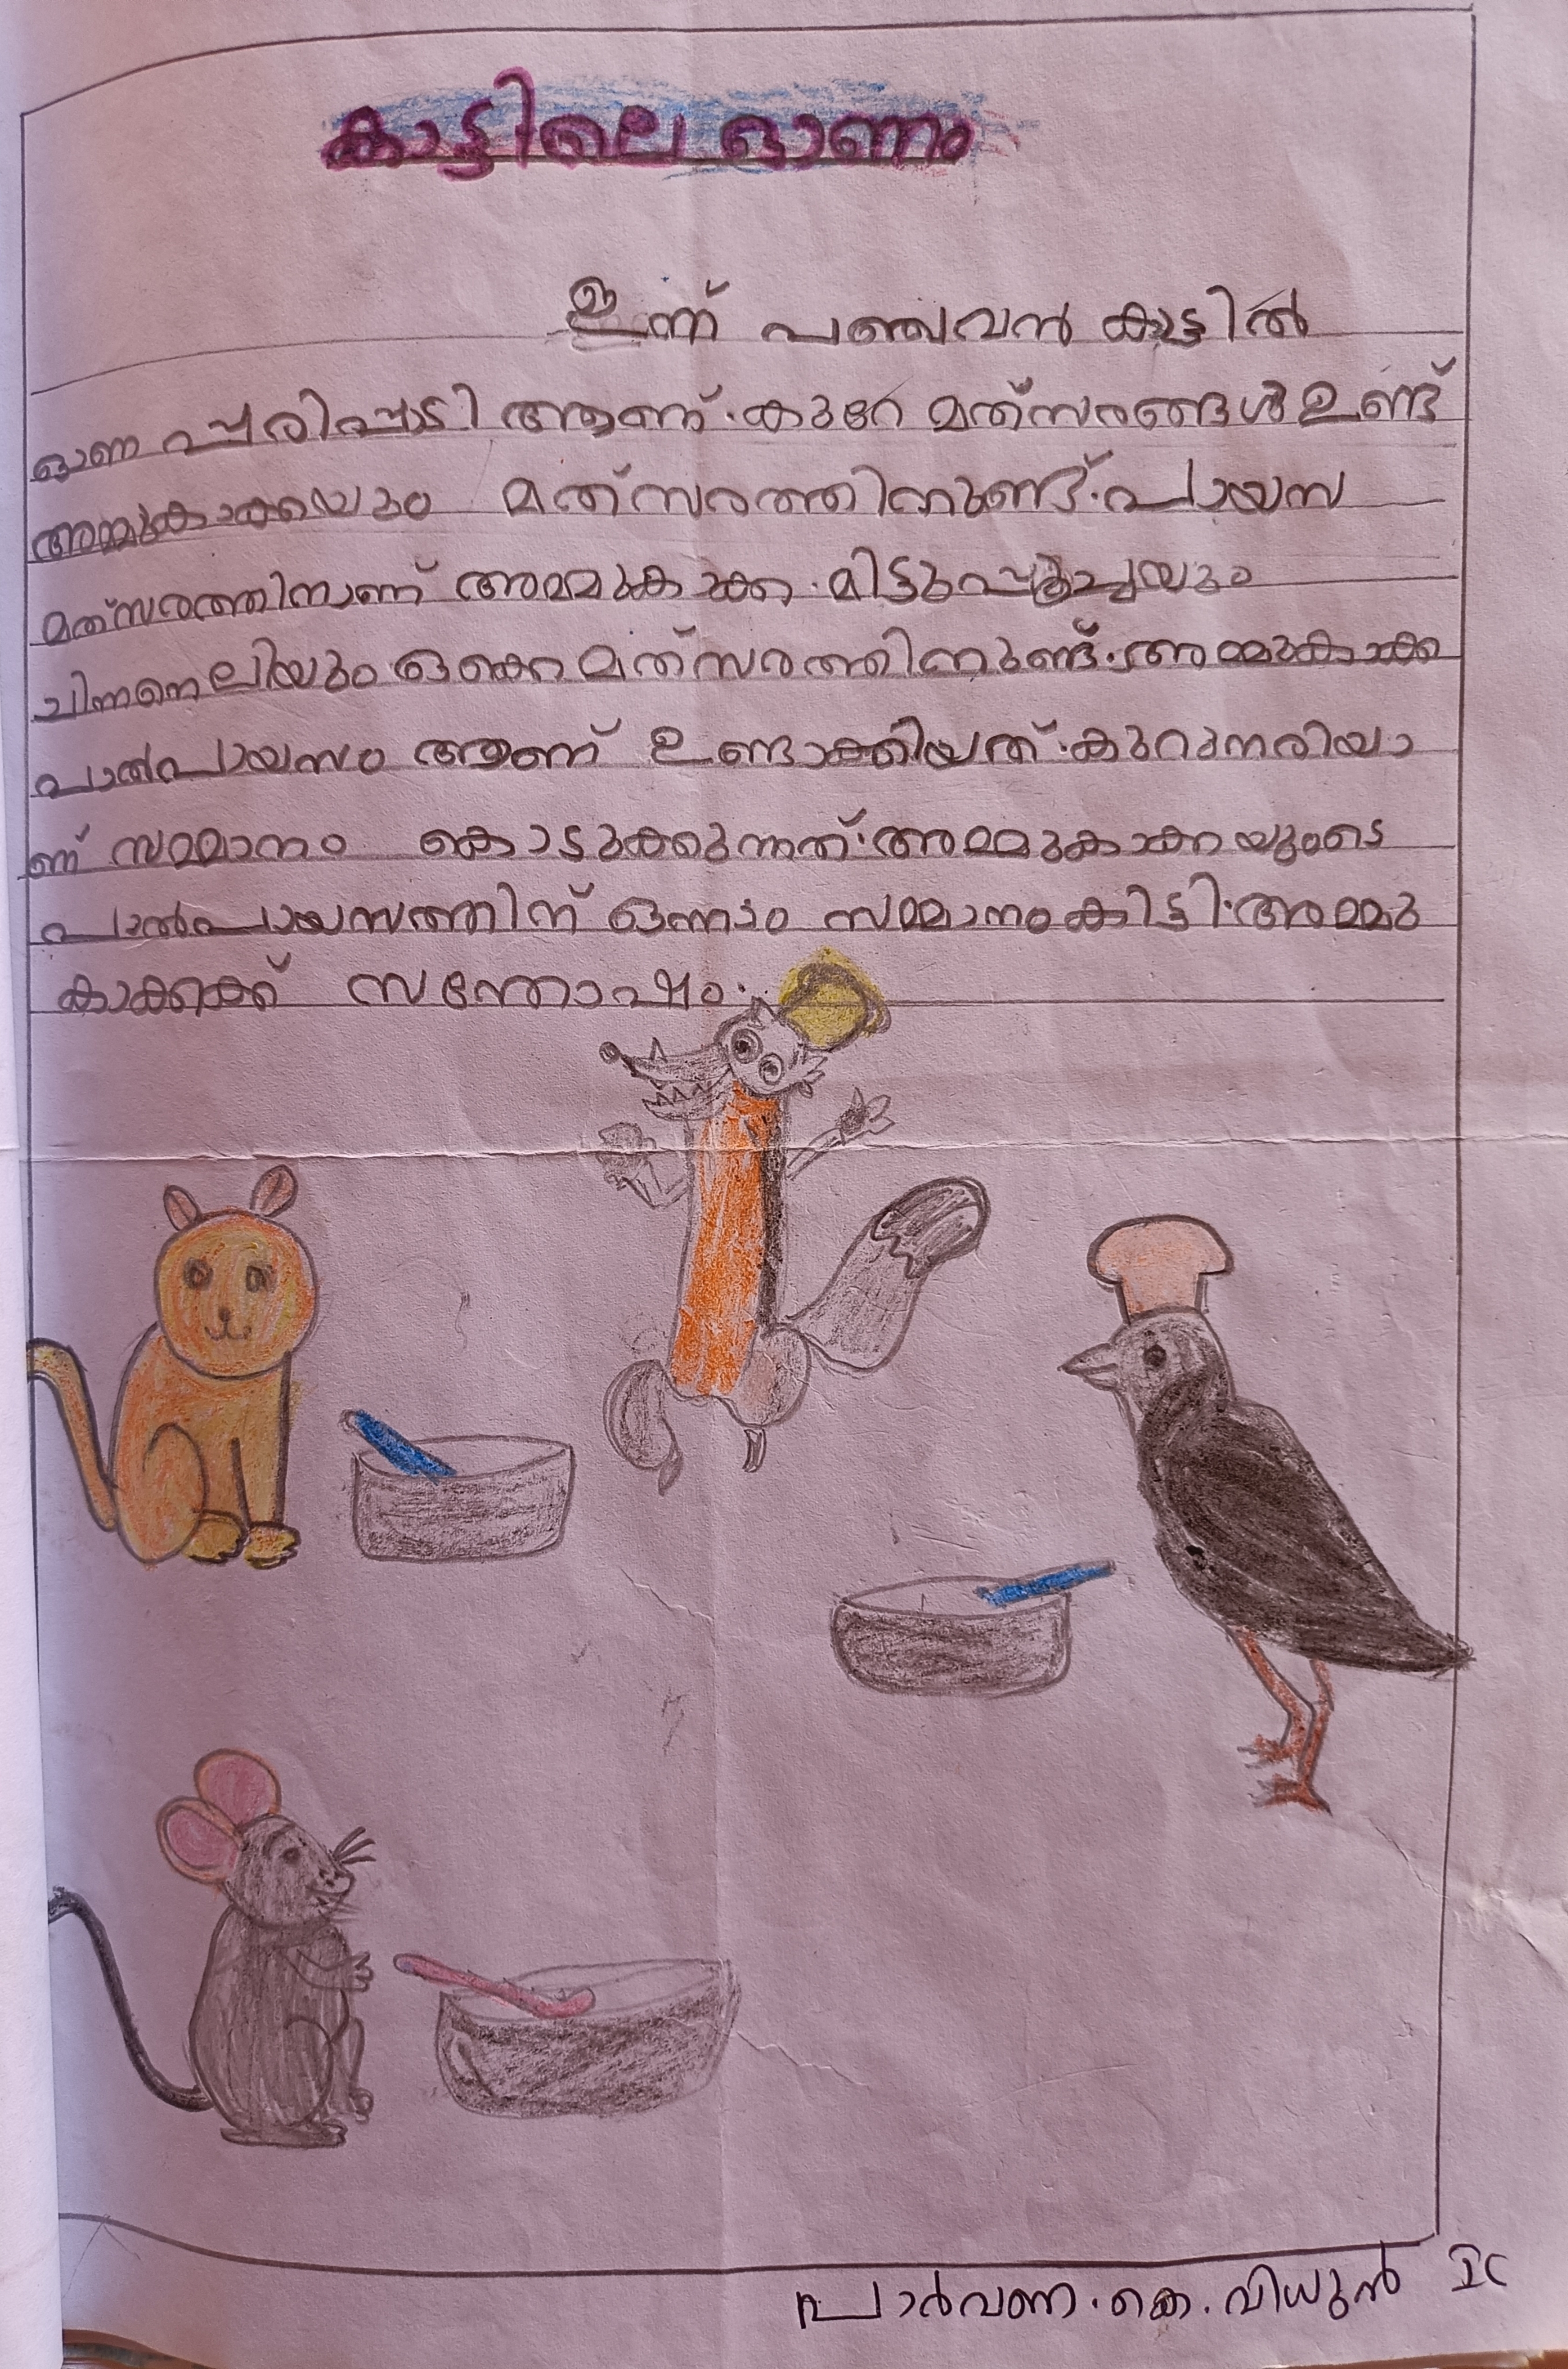 കാട്ടിലെ ഓണം
ഇന്ന് പഞ്ചവൻ കാട്ടിൽ
ഓണ പ്പരിപ്പാടി ആണ്. കുറേ മത്സരങ്ങൾ ഉണ്ട്
അമ്മുകാക്കയും മത്സരത്തിനുണ്ട്. പായസ
മത്സരത്തിനാണ് അമ്മുകാക്ക. മിട്ടുപ്പൂച്ചയും
ചിന്നനെലിയും ഒക്കെ മത്സരത്തിനുണ്ട്. അമ്മുകാക്ക
പാൽപായസം ആണ് ഉണ്ടാക്കിയത്. കുറുനരിയാ
ണ് സമ്മാനം കൊടുക്കുന്നത്. അമ്മുകാക്കയുടെ
പാൽപായസത്തിന് ഒന്നാം സമ്മാനം കിട്ടി. അമ്മു
കാക്കക്ക് സന്തോഷം.
പാർവണ. കെ. വിധുൻ